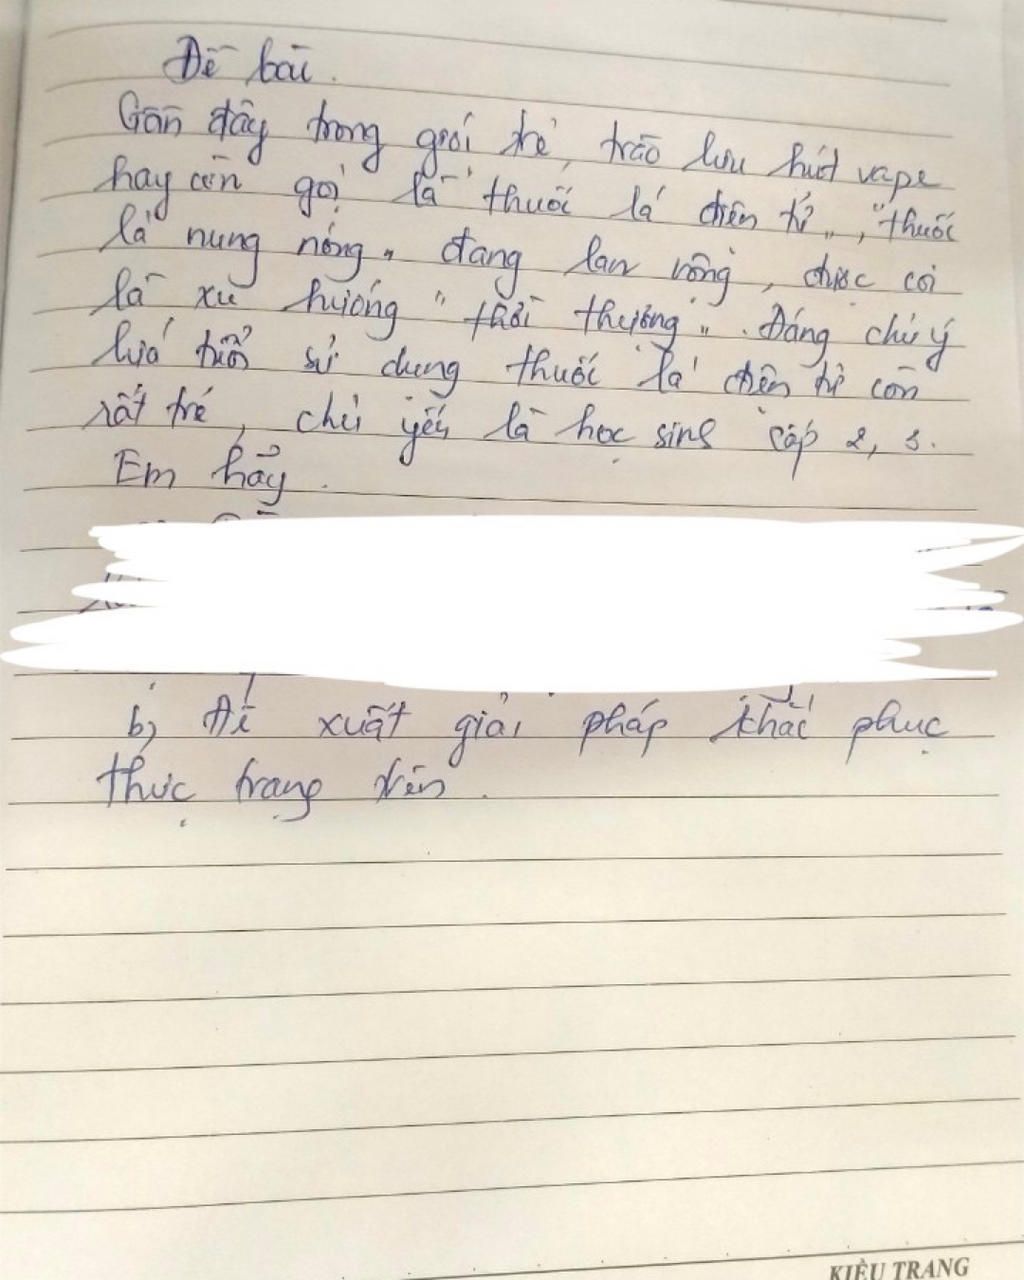 Đề bài.
Gần đây trong giới trẻ, trào lưu hút vape
hay còn gọi là "thuốc lá điện tử", "thuốc
lá nung nóng" đang lan rộng, được coi
là xu hướng "thời thượng". Đáng chú ý
lứa tuổi sử dụng thuốc lá điện tử còn
rất trẻ, chủ yếu là học sinh cấp 2, 3.
Em hãy.
b) Đề xuất giải pháp khắc phục
thực trạng trên.
KIỀU TRANG